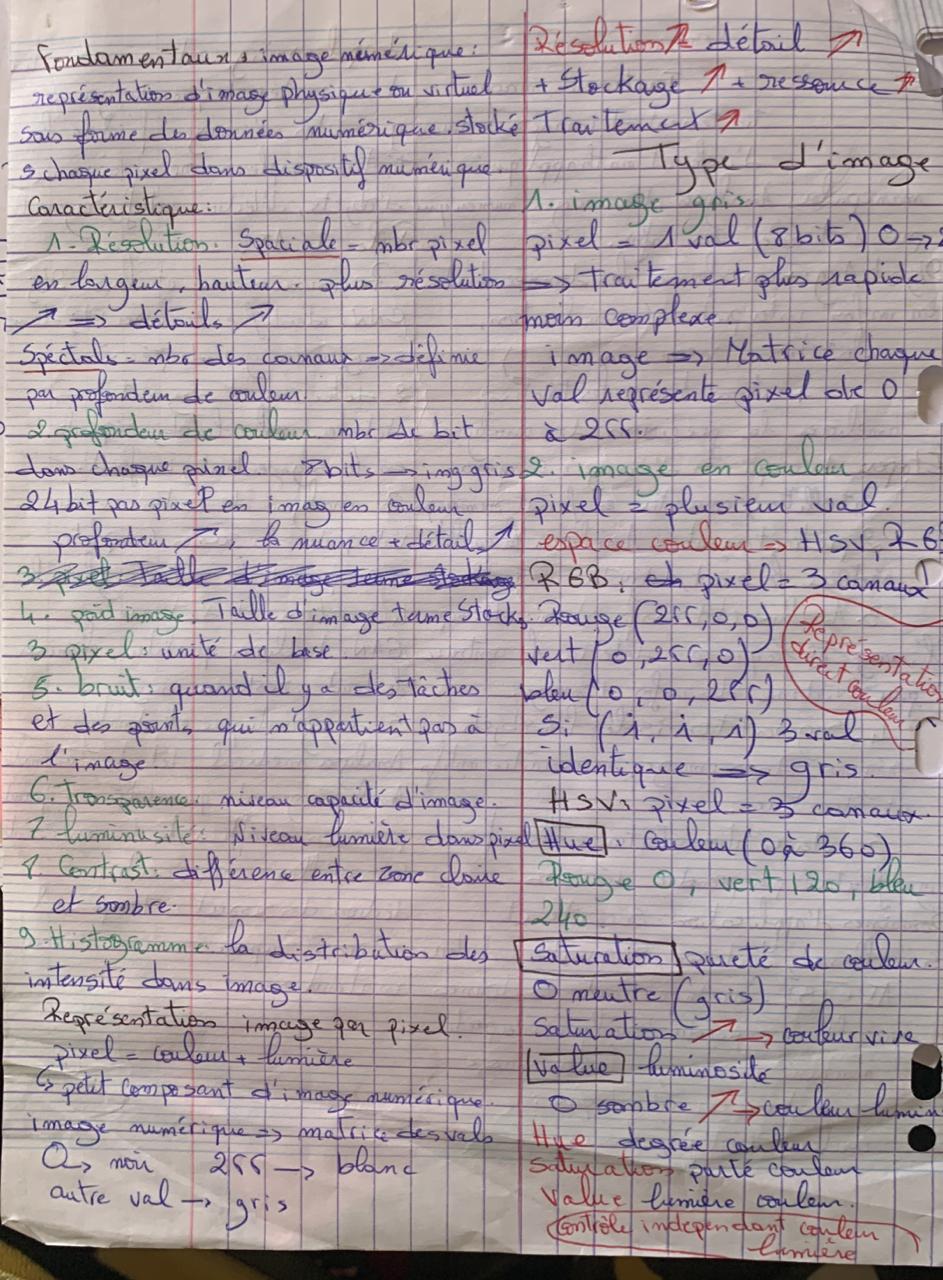 Fondamentaux : image némérique :
représentation d'image physique ou virtuel
sous forme des données numérique. stocké
s chaque pixel dans dispositif numérique.
Caractéristique :
1. Résolution. Spaciale = nbr pixel
en largeur, hauteur. plus résolution
↗ => détails ↗
Spéctale = nbr des cannaux -> définie
par profondeur de couleur.
2 profondeur de couleur nbr de bit
dans chaque pixel. 8bits -> img gris
24 bit pas pixel en imag en couleur
profondeur ↗, la nuance + détail ↗
4. poid image. Taille d'image terme Stock
3 pixel : unité de base.
5. bruit : quand il y a des tâches
et des points qui n'appartient pas à
l'image.
6. Transparence. niveau capacité d'image.
7 luminusité : Niveau lumière dans pixel
8. Contrast : différence entre zone claire
et sombre.
9. Histogramme. la distribution des
intensité dans image.
Représentation image par pixel.
pixel = couleur + lumière
↳ petit composant d'image numérique.
image numérique => matrice des vals
0 -> noir 255 -> blanc
autre val -> gris
Résolution ↗ détail ↗
+ Stockage ↗ + ressource ↗
Traitement ↗
Type d'image
1. image gris
pixel = 1 val (8 bits) 0 ->
=> traitement plus rapide
moin complexe.
image => Matrice chaque
val représente pixel de 0
à 255.
2. image en couleur
pixel = plusieur val.
espace couleur => HSV, RG
RGB : pixel = 3 canaux
Rouge (255, 0, 0)
vert (0, 255, 0)
bleu (0, 0, 255)
Représentation
direct couleur
Si (i, i, i) 3 val
identique => gris.
HSV : pixel = 3 canaux
Hue : couleur (0 à 360)
Rouge 0, vert 120, bleu
240
Saturation pureté de couleur.
0 neutre (gris)
Saturation ↗ -> couleur vive
Value luminosité
0 sombre ↗ -> couleur lumin
Hue degrée couleur
Saturation pürté couleur
Value lumière couleur.
Contrôle indépendant couleur
lumière